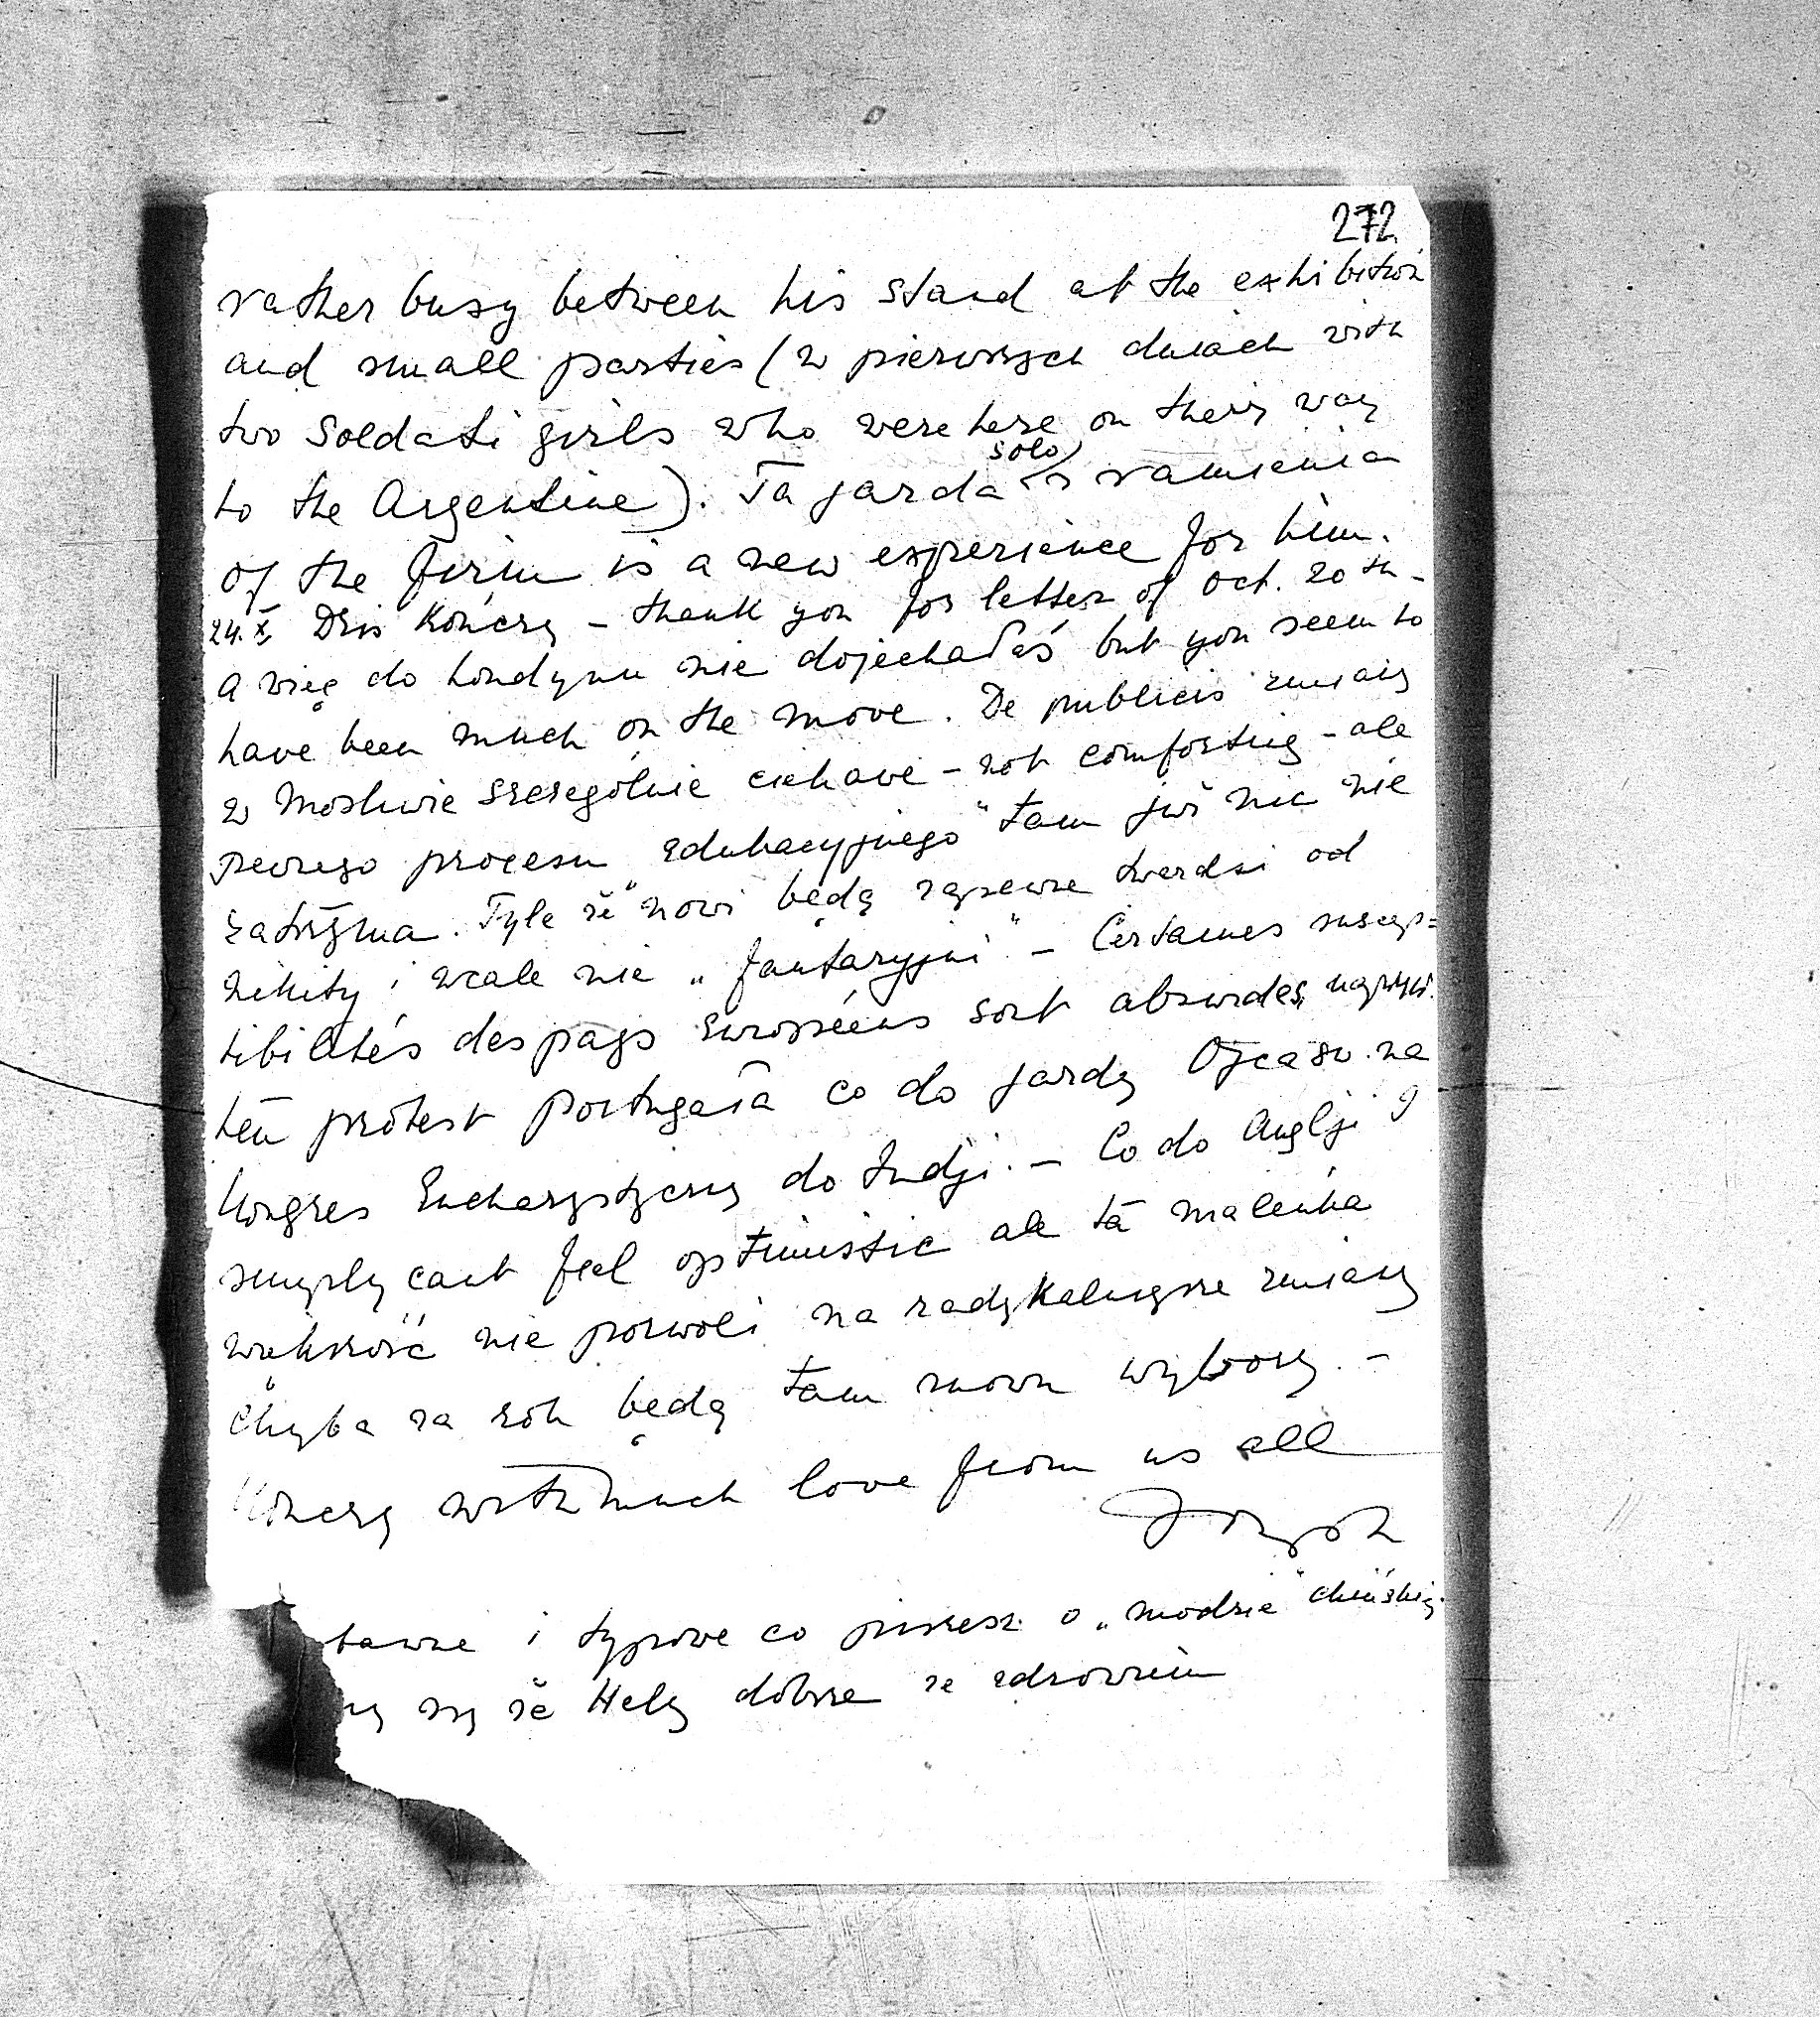 272
rather busy between his stand at the exhibition
and small parties (w pierwszych dniach with
two Soldati girls who were here on their way
to the Argentine). Ta jazda solo z ramienia
of the firm is a new experience for him.
24.X. Dziś kończę – thank you for letter of Oct. 20th –
a więc do Londynu nie dojechałaś but you seem to
have been much on the move. De publicis zmiany
w Moskwie szczególnie ciekawe – not comforting – ale
pewnego procesu "edukacyjnego" tam już nic nie
zatrzyma. Tyle że "nowi" będą zapewne twardsi od
Nikity i wcale nie „fantazyjni" – Certaines suscep=
tibilités des pays Européens sont absurdes, naprzykł.
ten protest Portugala co do jazdy Ojca św. na
Kongres Eucharystyczny do Indji. – Co do Anglji I
simply cant feel optimistic ale ta maleńka
większość nie pozwoli na radykalniejsze zmiany
Chyba za rok będą tam znowu wybory. –
Kończę with much love from us all
Józych
bawne i typowe co piszesz o „modzie" chińskiej.
ny się że Heli dobrze ze zdrowiem